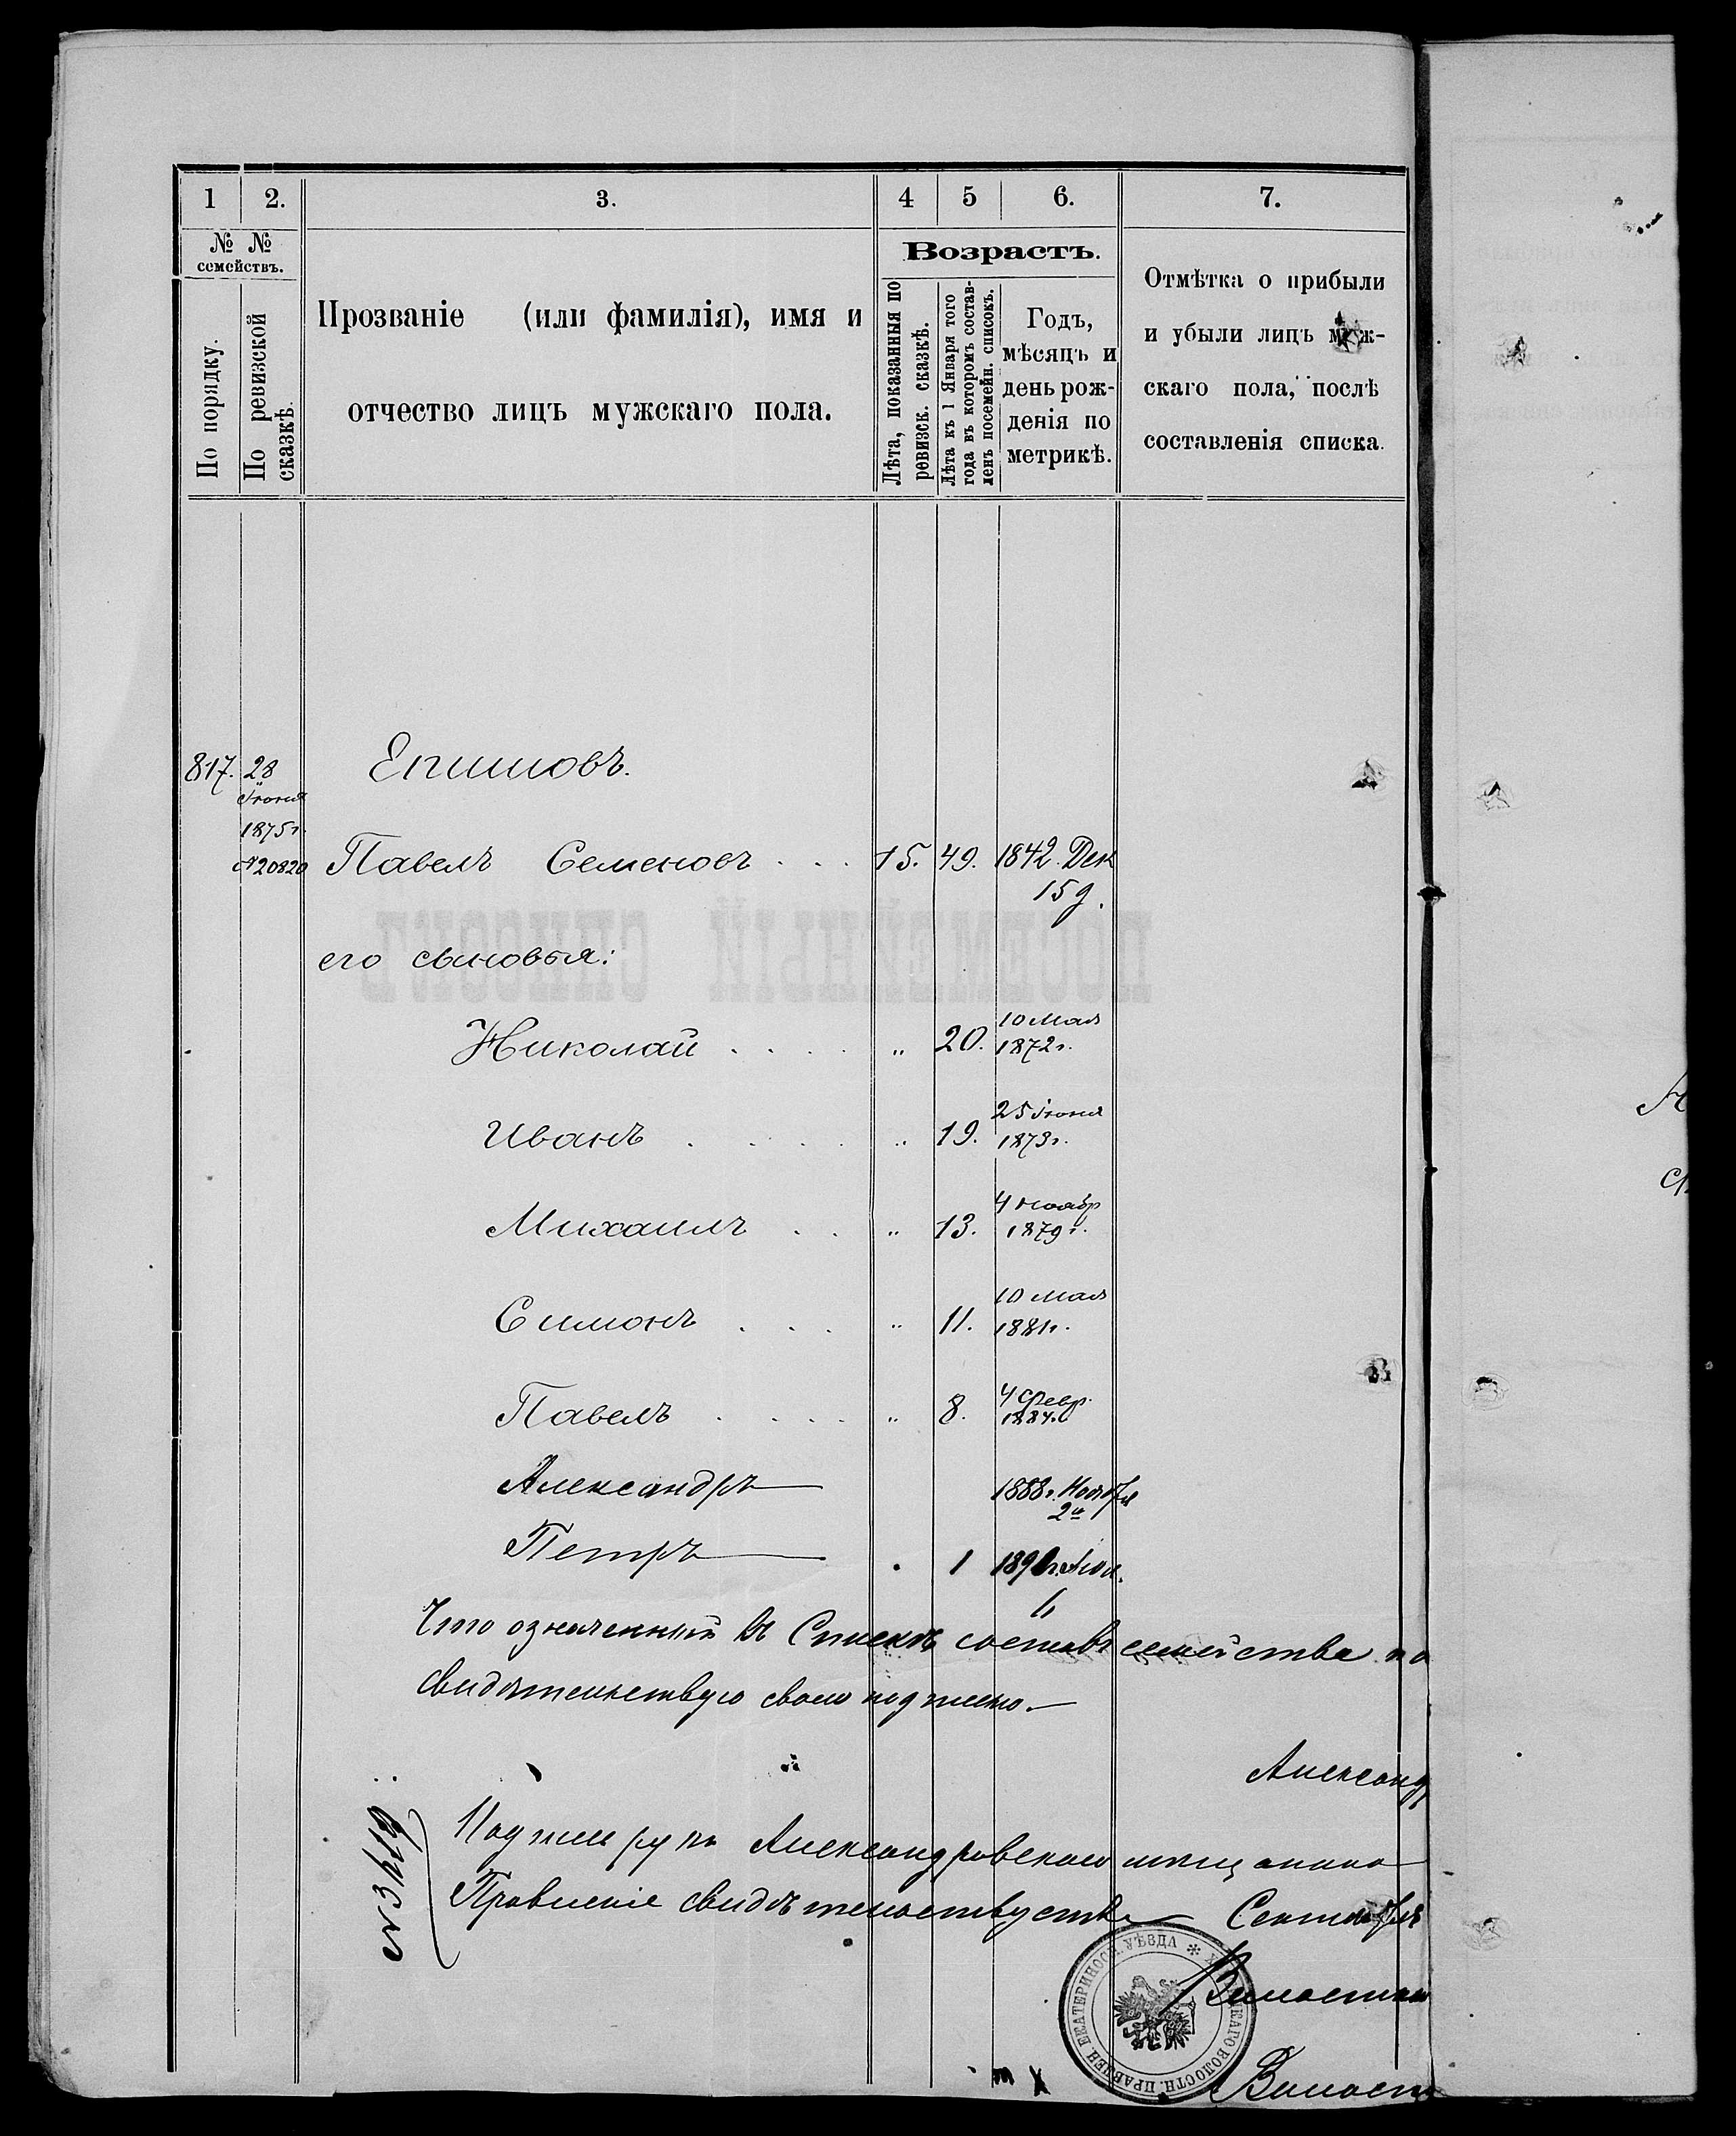 1 2. 3. 4 5 6. 7.
№ №
семействъ.
По порядку.
По ревизской
сказкѣ.
Прозваніе (или фамилія), имя и
отчество лицъ мужскаго пола.
Возрастъ.
Лѣта, показанныя по
ревизск. сказкѣ.
Лѣта къ 1 Января того
года въ которомъ состав-
ленъ посемейн. списокъ.
Годъ,
мѣсяцъ и
день рож-
денія по
метрикѣ.
Отмѣтка о прибыли
и убыли лицъ муж-
скаго пола, послѣ
составленія списка.
817. 28 Епишовъ.
Іюня
1875г.
№20820 Павелъ Семеновъ . . . 15. 49. 1842. Дек
15 д.
его сыновья:
Николай . . . . „ 20. 10 Мая
1872г.
Иванъ . . . . . „ 19. 25 Іюня
1873г.
Михаилъ . . „ 13. 4 Ноябр
1879г.
Симонъ . . . „ 11. 10 Мая
1881г.
Павелъ . . . . „ 8. 4 Февр.
1884г.
Александръ 1888г. Ноября
2го
Петръ 1
Что означенный въ Спискѣ составъ семейства
свидѣтельствую свою подпись.
Александ
№
Подпись руки Александровскаго мѣщанина
Правленіе свидѣтельствуетъ Сентября
ЕКАТЕРИНОСЛ. УѢЗДА ВОЛОСТН. ПРАВЛЕН.
Волостн
Волост
ПОСЕМЕЙНЫЙ СПИСОКЪ